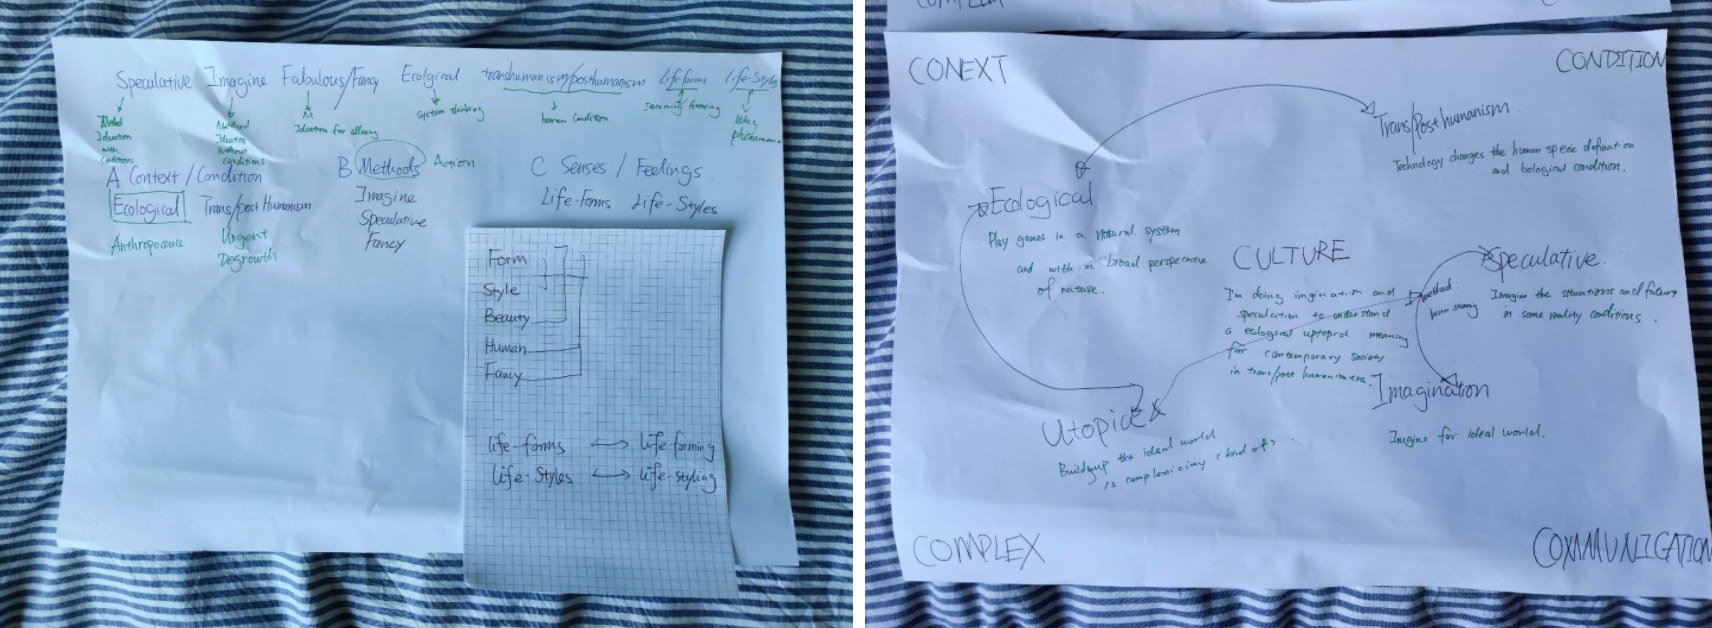 Speculative Imagine Fabulous/Fancy Ecolgical transhumanism/posthumanism Life-form Life-Styles
Method
Ideation
with
conditions
Method
Ideation
without
conditions
Ideation for allowing
system thinking
human condition
Growing
phenomena
A Context / Condition
Ecological Trans/post Humanism
Anthropocence
Urgent
Degrowth
B Methods Action
Imagine
Speculative
Fancy
C Senses / Feelings
Life-Forms Life-Styles
Form
Style
Beauty
Human
Fancy
life-forms life-forming
life-Styles life-styling
CONEXT
CONDITION
Trans/Post humanism
Technology changes the human specic defination
and bological condition.
Ecological
Play games in a natural system
and with a broad perspective
of nature.
CULTURE
I'm doing imgination and
speculation to understand
a ecological uptopid meaning
for contemporary society
in trans/post humanism era.
method:
brain storming
Speculative.
Imagine the situations and future
in some reality conditions.
Imagination
Imgine for ideal world.
Utopic
Buildup the ideal world
is complexicimy (kind of)
COMPLEX
COXMMUNICATION